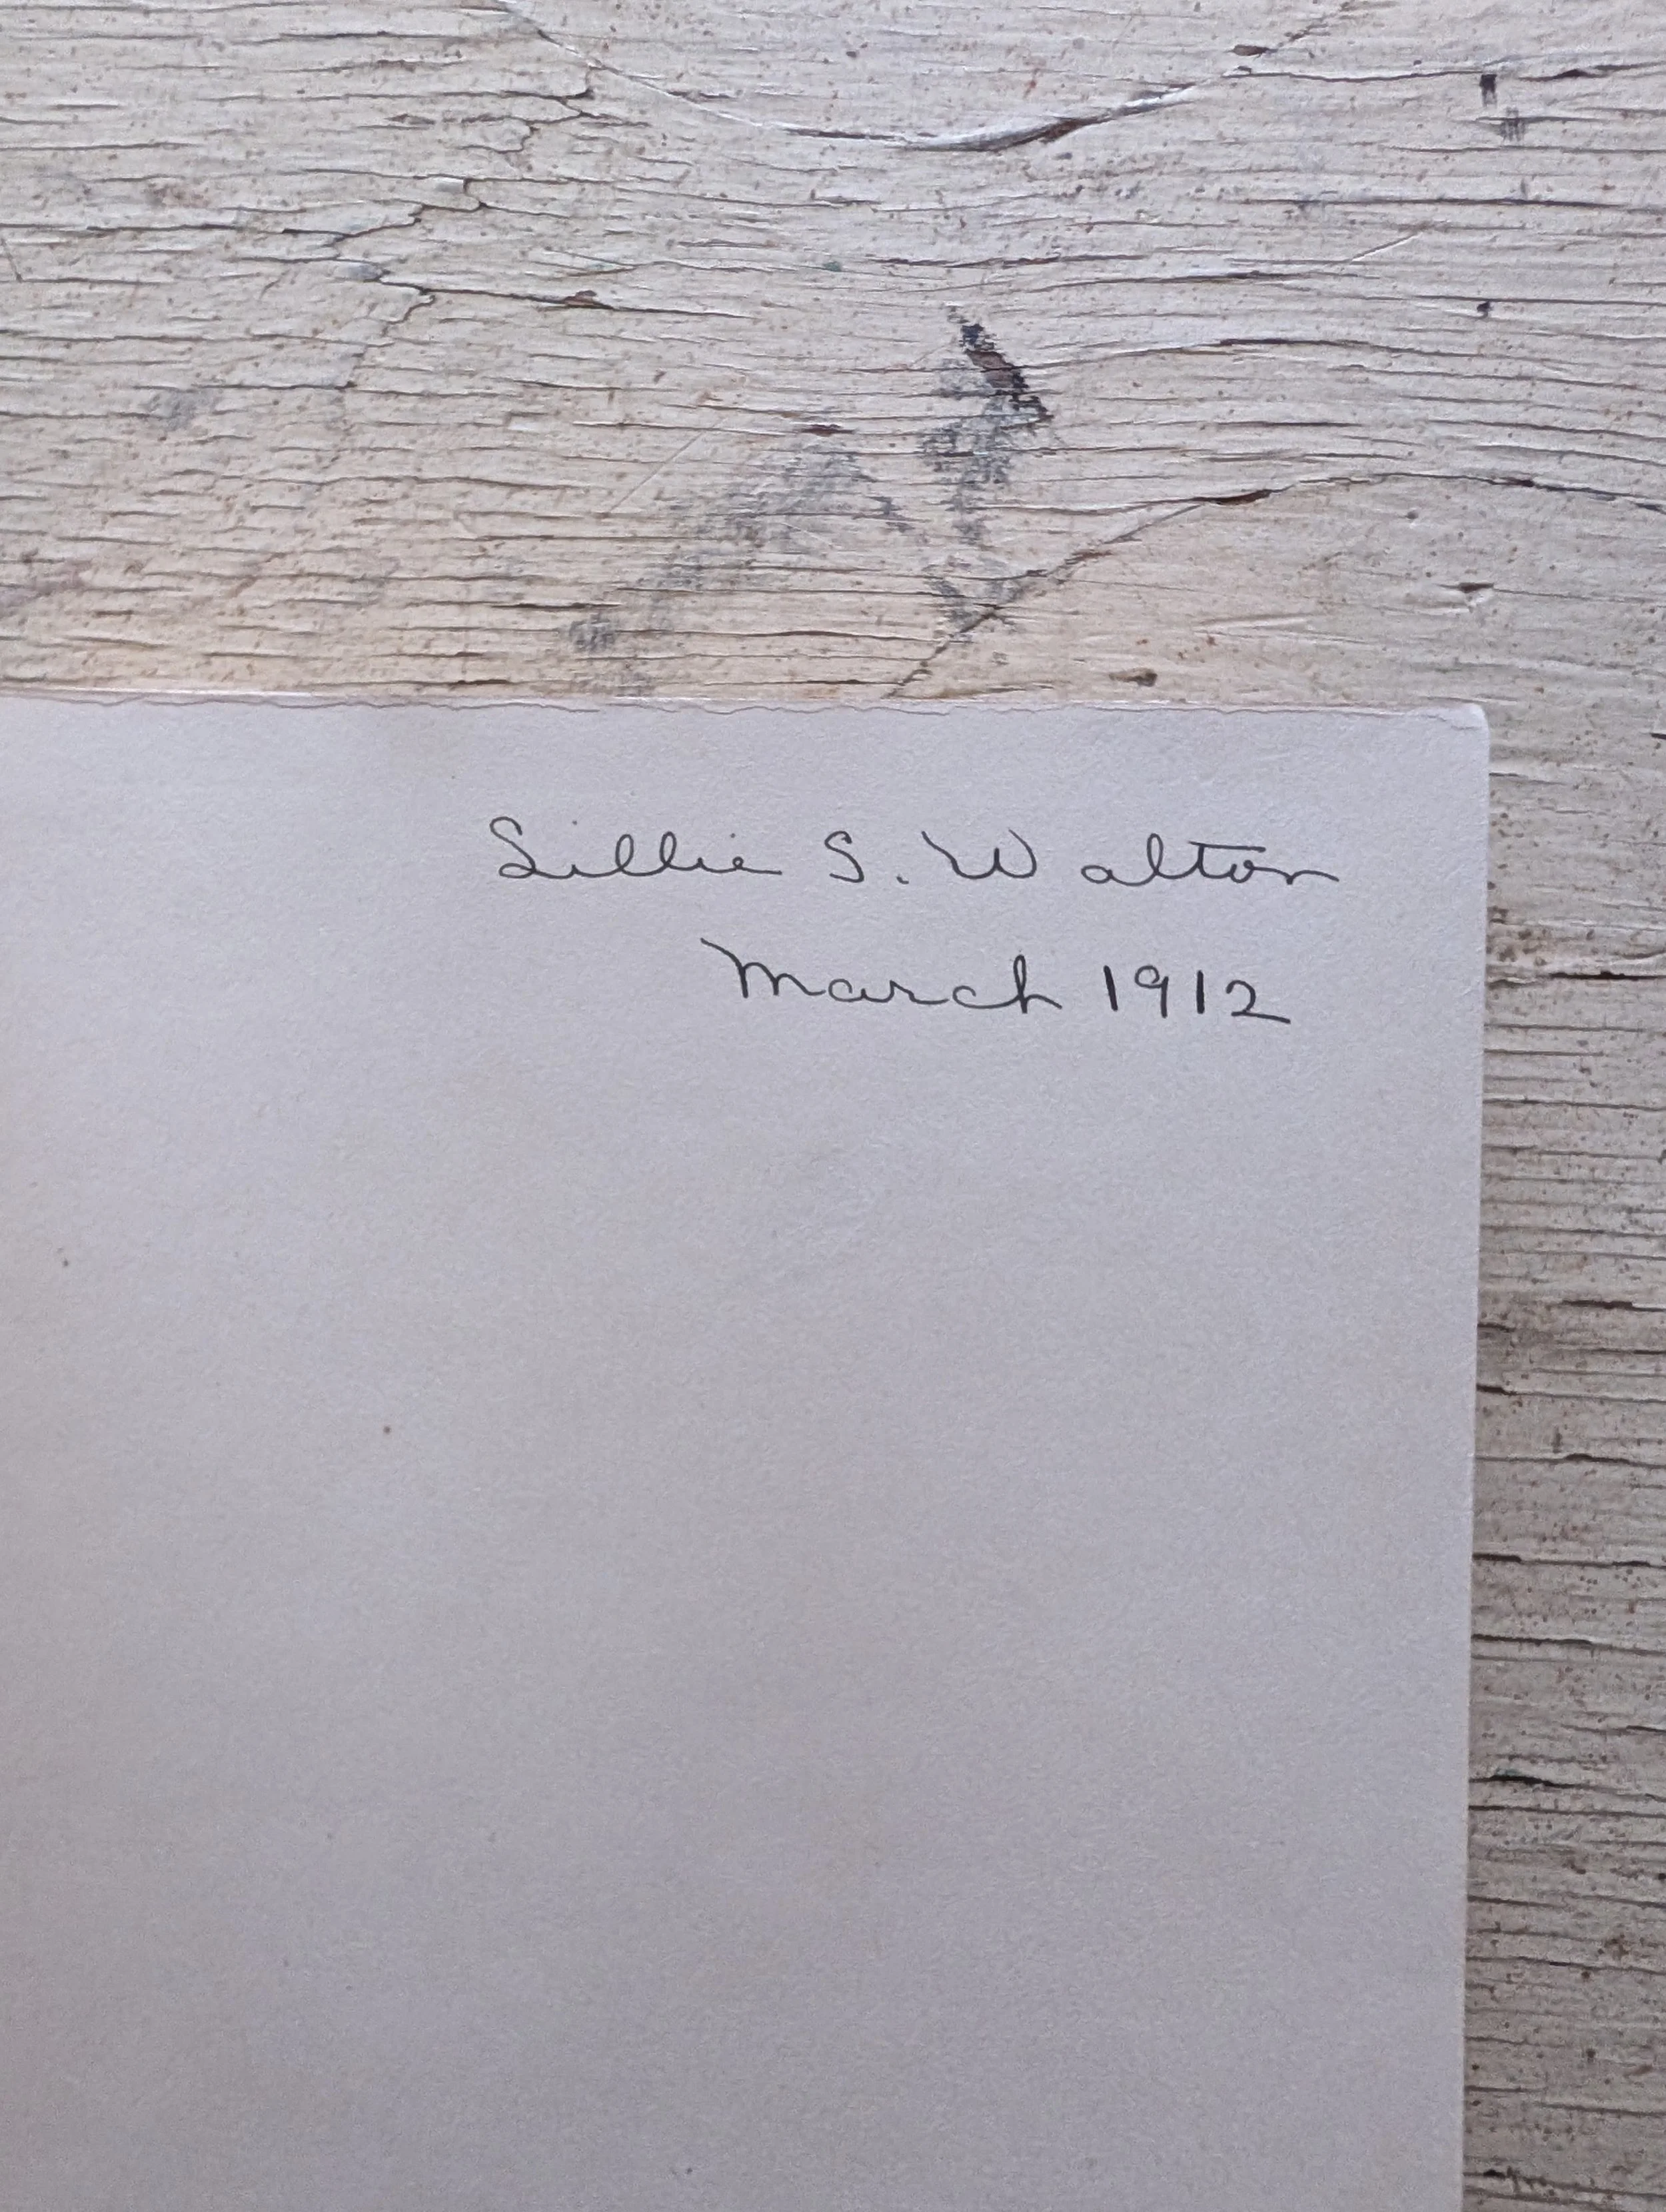 Lillie S. Walton
March 1912